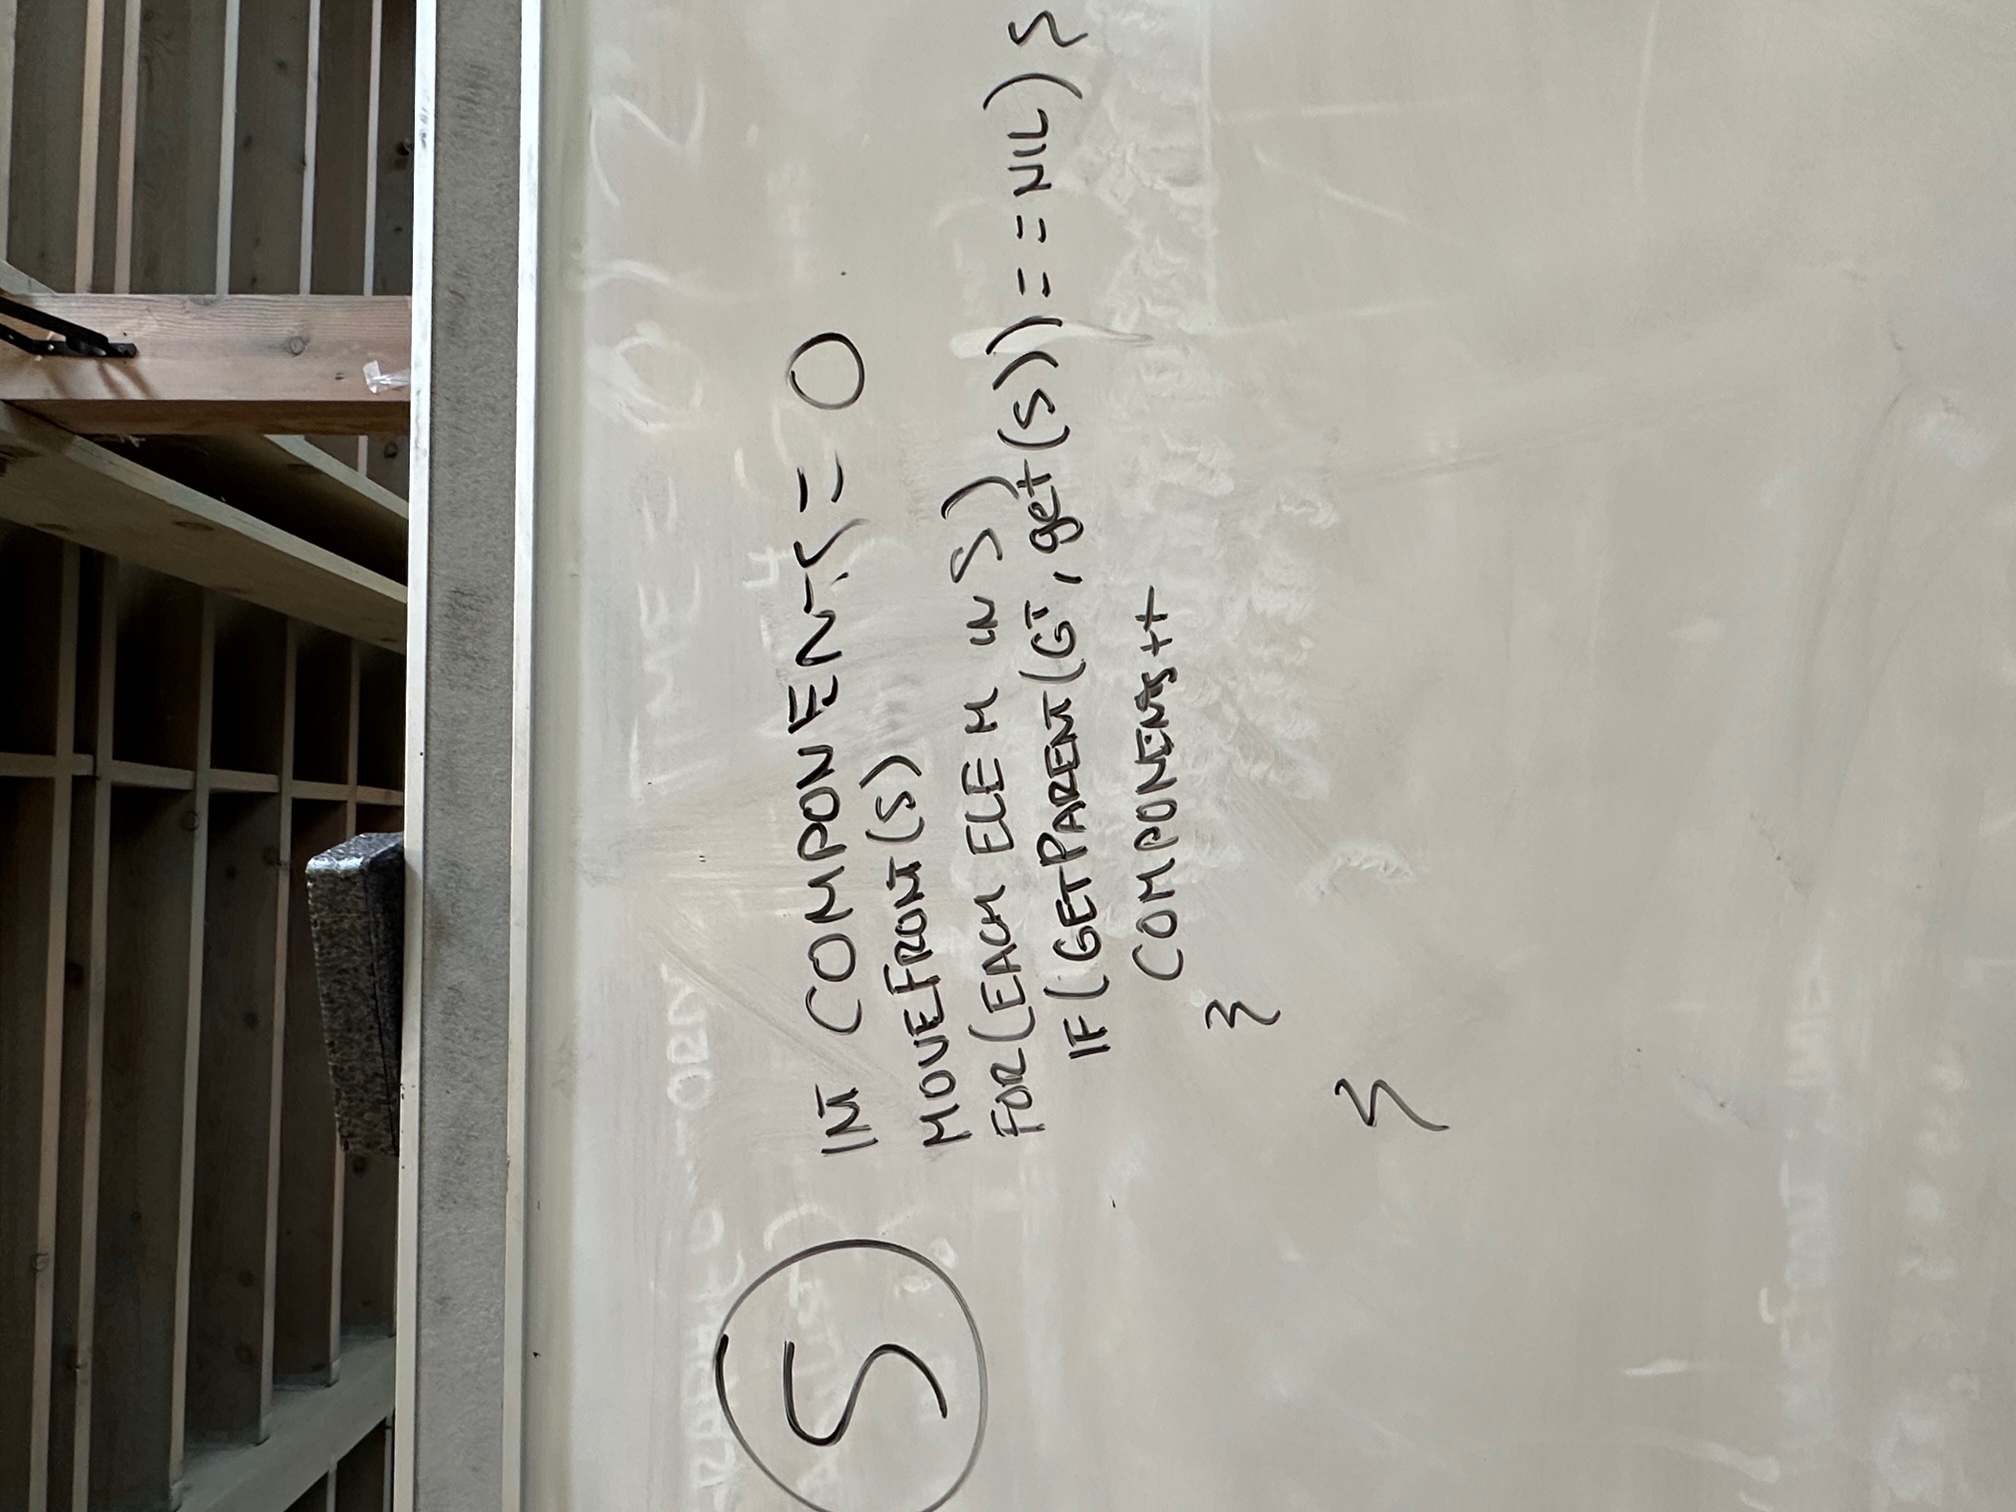 5
INT COMPONENTS = 0
MOVEFRONT(S)
FOR(EACH ELEM IN S)
IF(GETPARENT(Gᵀ, get(S)) == NIL) {
COMPONENTS++
}
}
TIME =